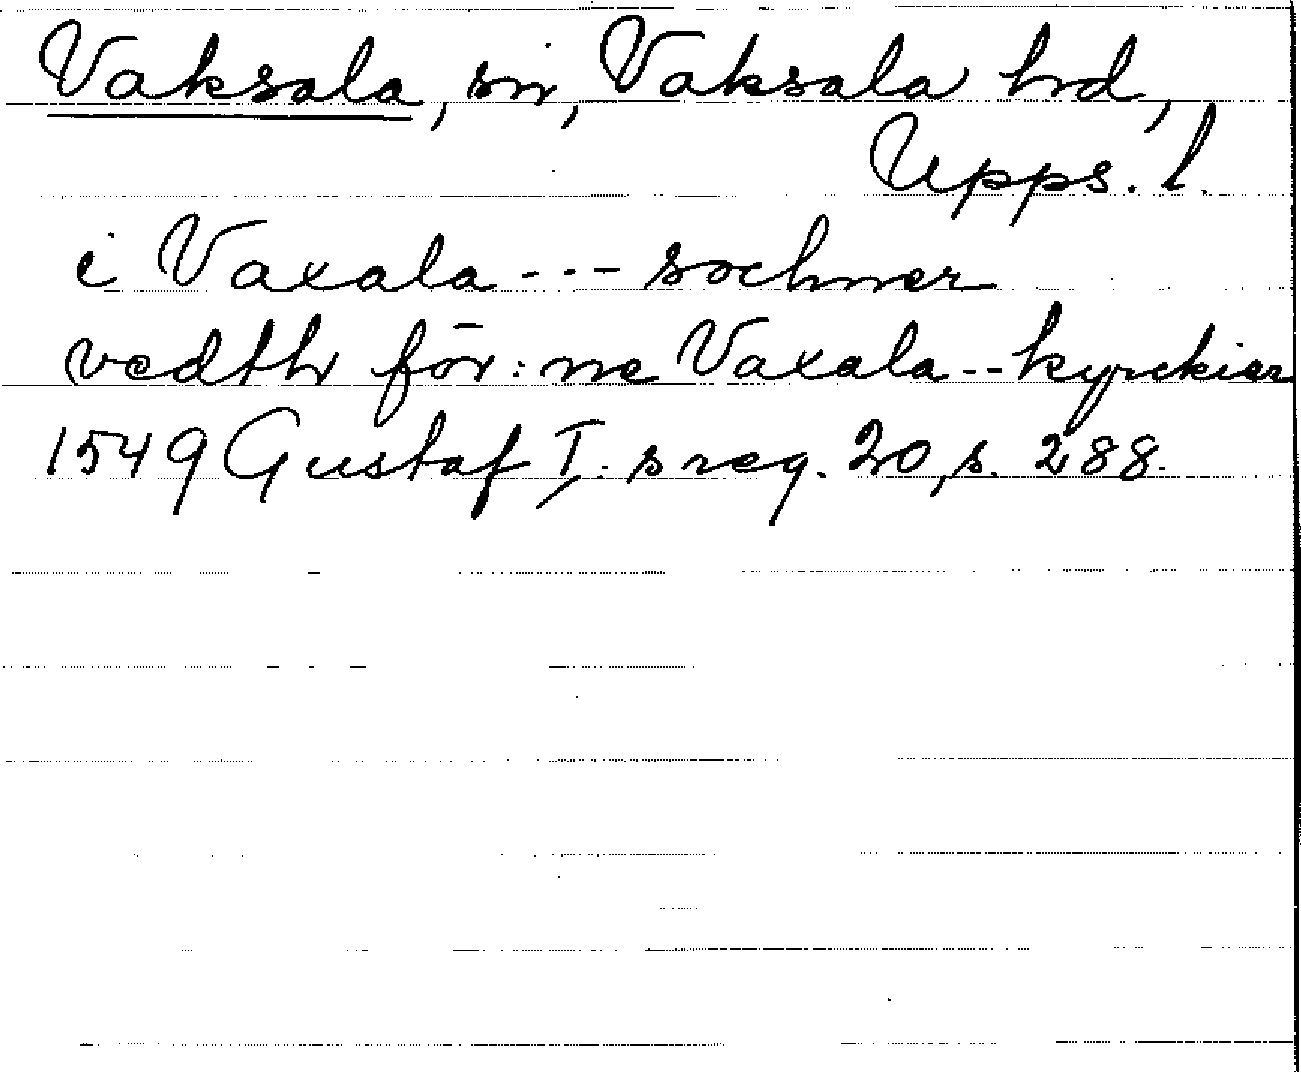 Vaksala, sn, Vaksala hd,
Upps. l.
i Vaxala --- sochner
vedth för:ne Vaxala -- kyrckier
1549 Gustaf I:s reg. 20, s. 288.